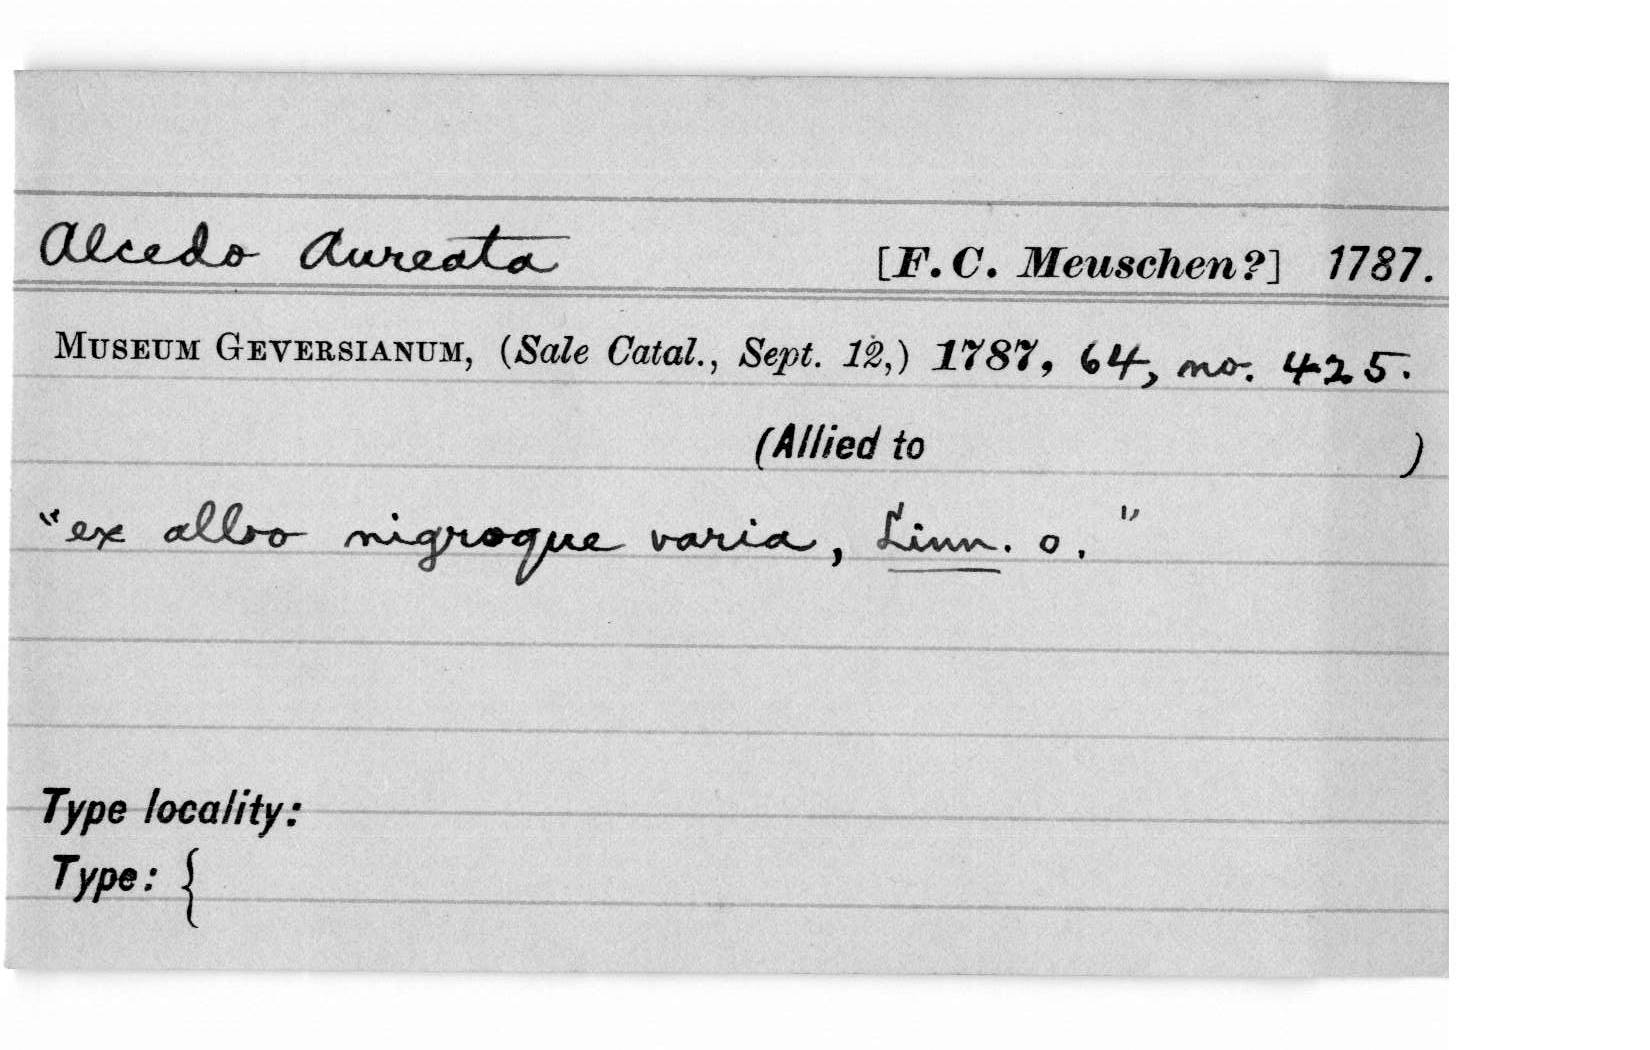 Alcedo Aureata [F. C. Meuschen?] 1787.
MUSEUM GEVERSIANUM, (Sale Catal., Sept. 12,) 1787, 64, no. 425.
(Allied to )
"ex albo nigroque varia, Linn. o."
Type locality:
Type: {